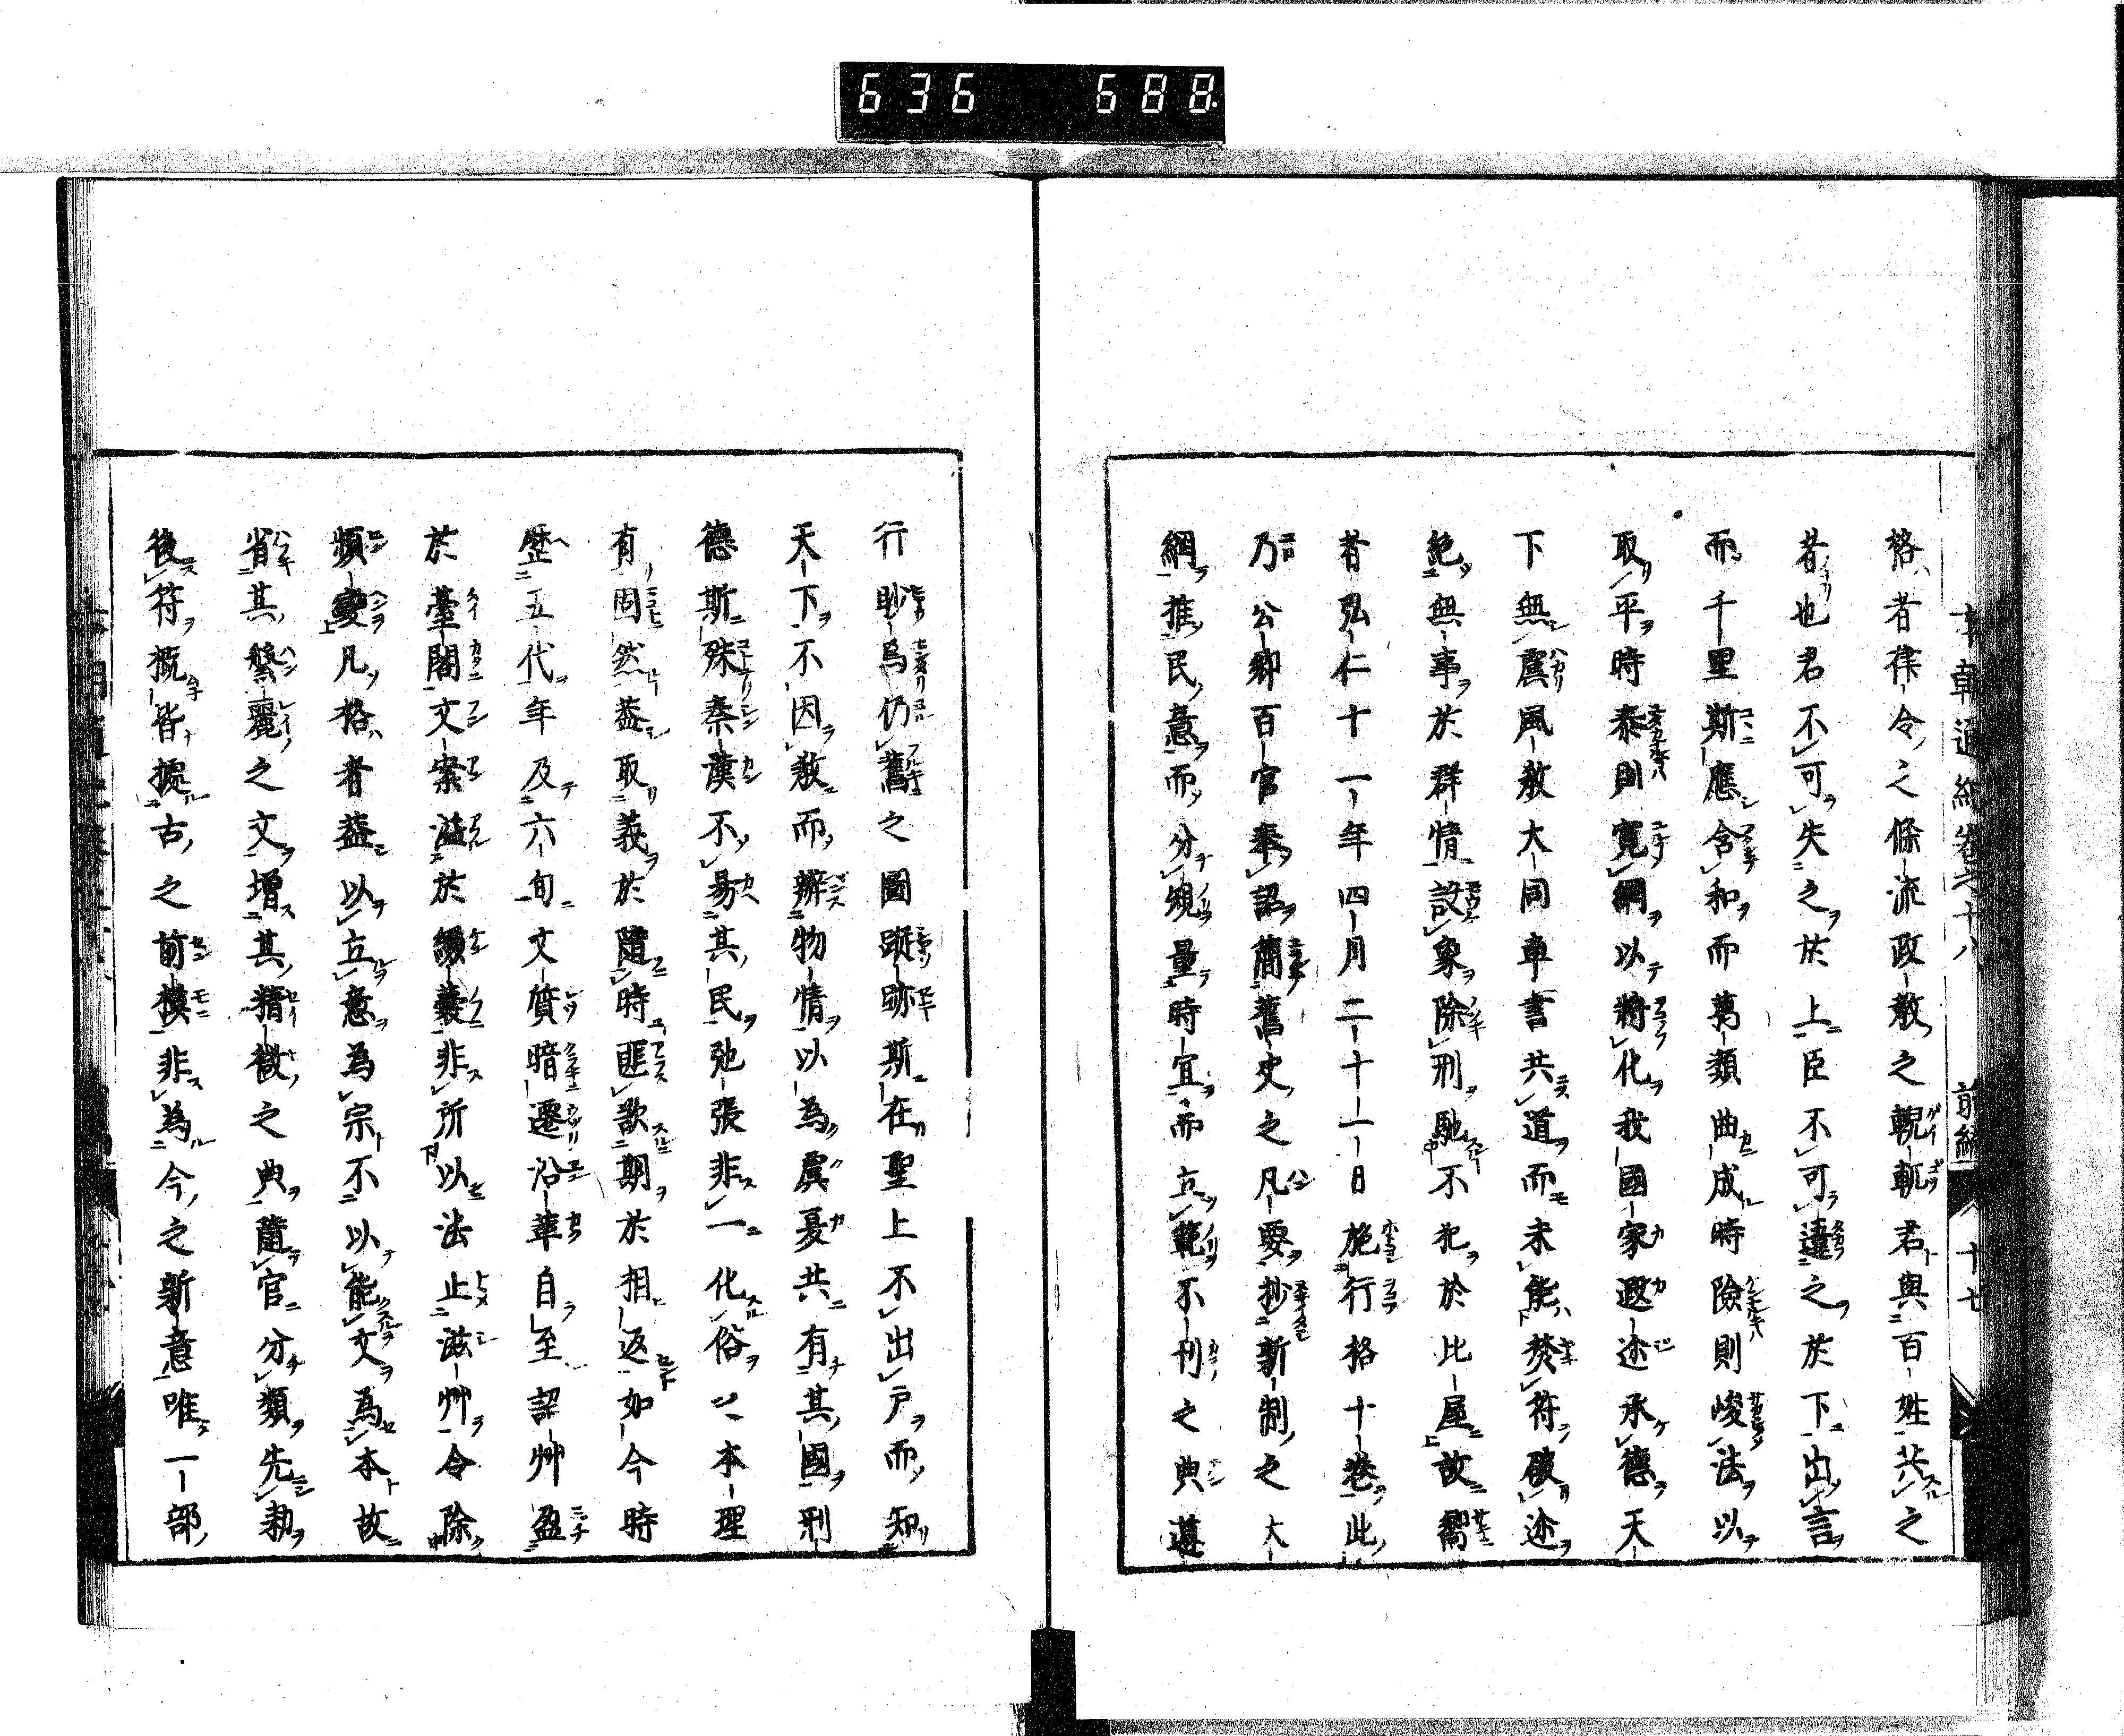 636 688
本朝通紀卷之十八 前編 十七
格者律令之條流政教之輗軏君與百姓共之
者也君不可失之於上臣不可違之於下出言
而千里斯應含和而萬類曲成時險則峻法以
取平時泰則寛網以將化我國家遐迩承德天
下無虞風教大同車書共道而未能焚符破迩
絶無事於群情設象除刑馳不犯於比屋故觿
昔弘仁十一年四月二十一日施行格十卷此
乃公卿百官奉詔簡舊史之凡要抄新制之大
綱推民意而分規量時宜而立範不刊之典遵
行眇焉仍舊之圖蹤跡斯在聖上不出戸而知
天下不因教而辨物情以為虞夏共有其國刑
德斯殊秦漢不易其民弛張非一化俗之本理
有固然蓋取義於隨時匪歆期於相返如今時
歷五代年及六旬文質暗遷沿革自至詔艸盈
於臺閣文案溢於縑囊非所以法止滋艸令除
煩變凡格者蓋以立意為宗不以能文為本故
省其繁麗之文増其精微之典隨官分類先勅
後符概皆據古之前模非為今之新意唯一部